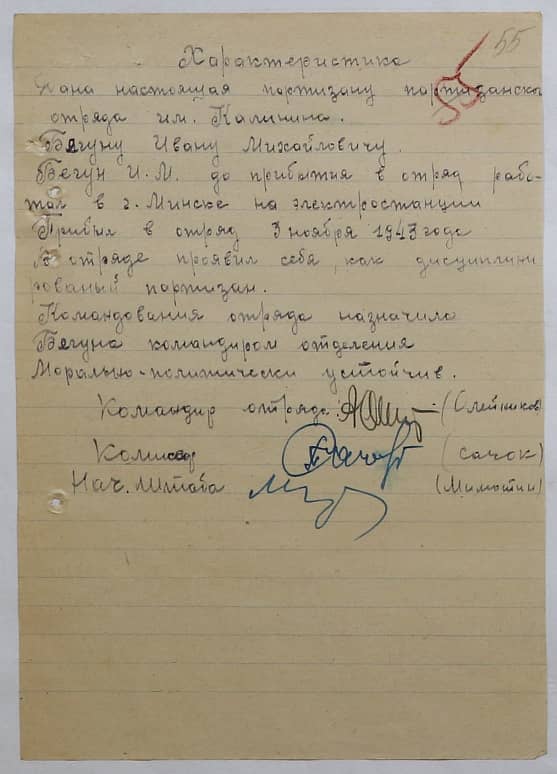 55
55
Характеристика
Дана настоящая партизану партизанско
отряда им. Калинина.
Бягуну Ивану Михайловичу.
Бегун И.М. до прибытия в отряд рабо-
тал в г. Минске на электростанции
Прибыл в отряд 3 ноября 1943 года
В отряде проявил себя, как дисциплини
рованый партизан.
Командования отряда назначило
Бягуна командиром отделения
Морально-политически устойчив.
Командир отряда: (Олейников)
Комисар (Сачок)
Нач. Штаба